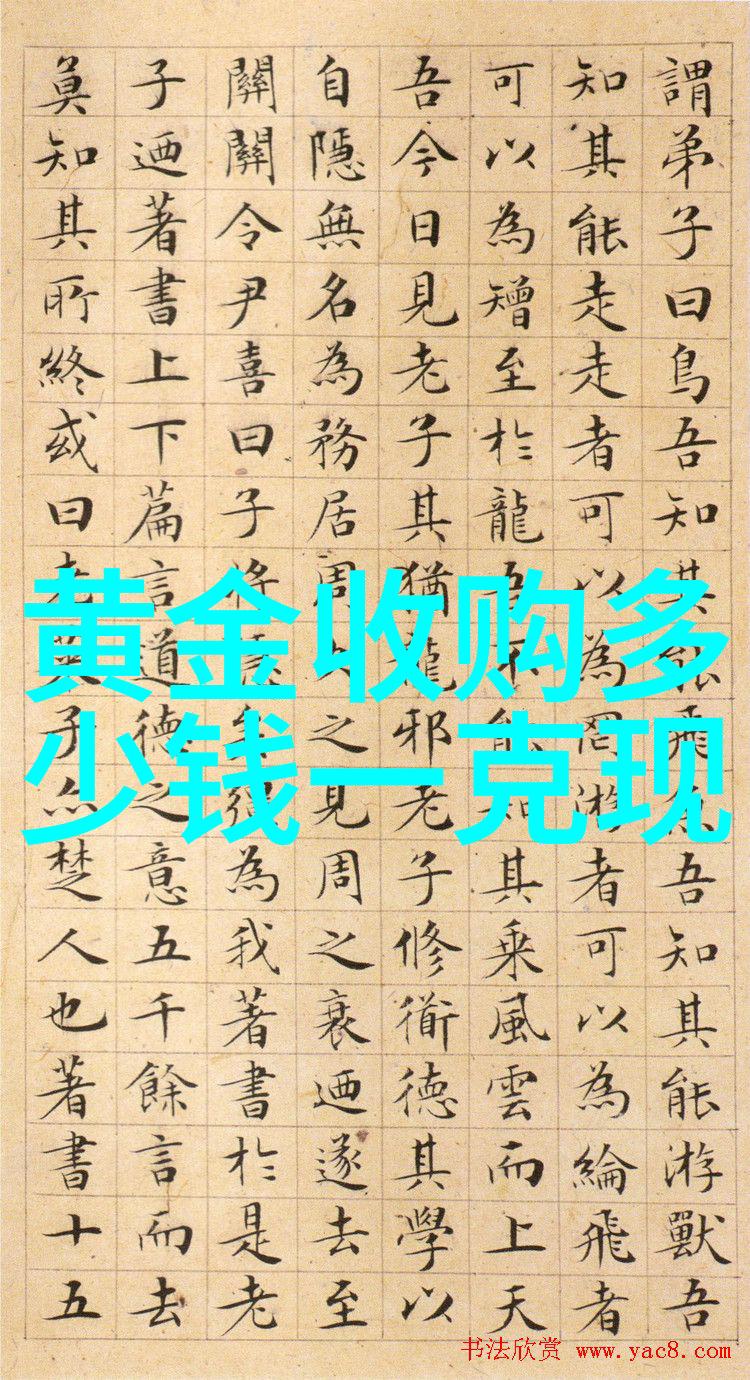 謂弟子曰鳥吾知其能飛魚吾知其能游獸吾
知其能走走者可以為罔游者可以為綸飛者
可以為矰至於龍吾不能知其乗風雲而上天
吾今日見老子其猶龍邪老子修衜德其學以
自隱無名為務居周久之見周之衰迺遂去至
關關令尹喜曰子将隱矣彊為我著書於是老
子迺著書上下篇言道德之意五千餘言而去
莫知其所終或曰老萊子亦楚人也著書十五
黄金收购多
少钱一克现
书法欣赏 www.yac8.com